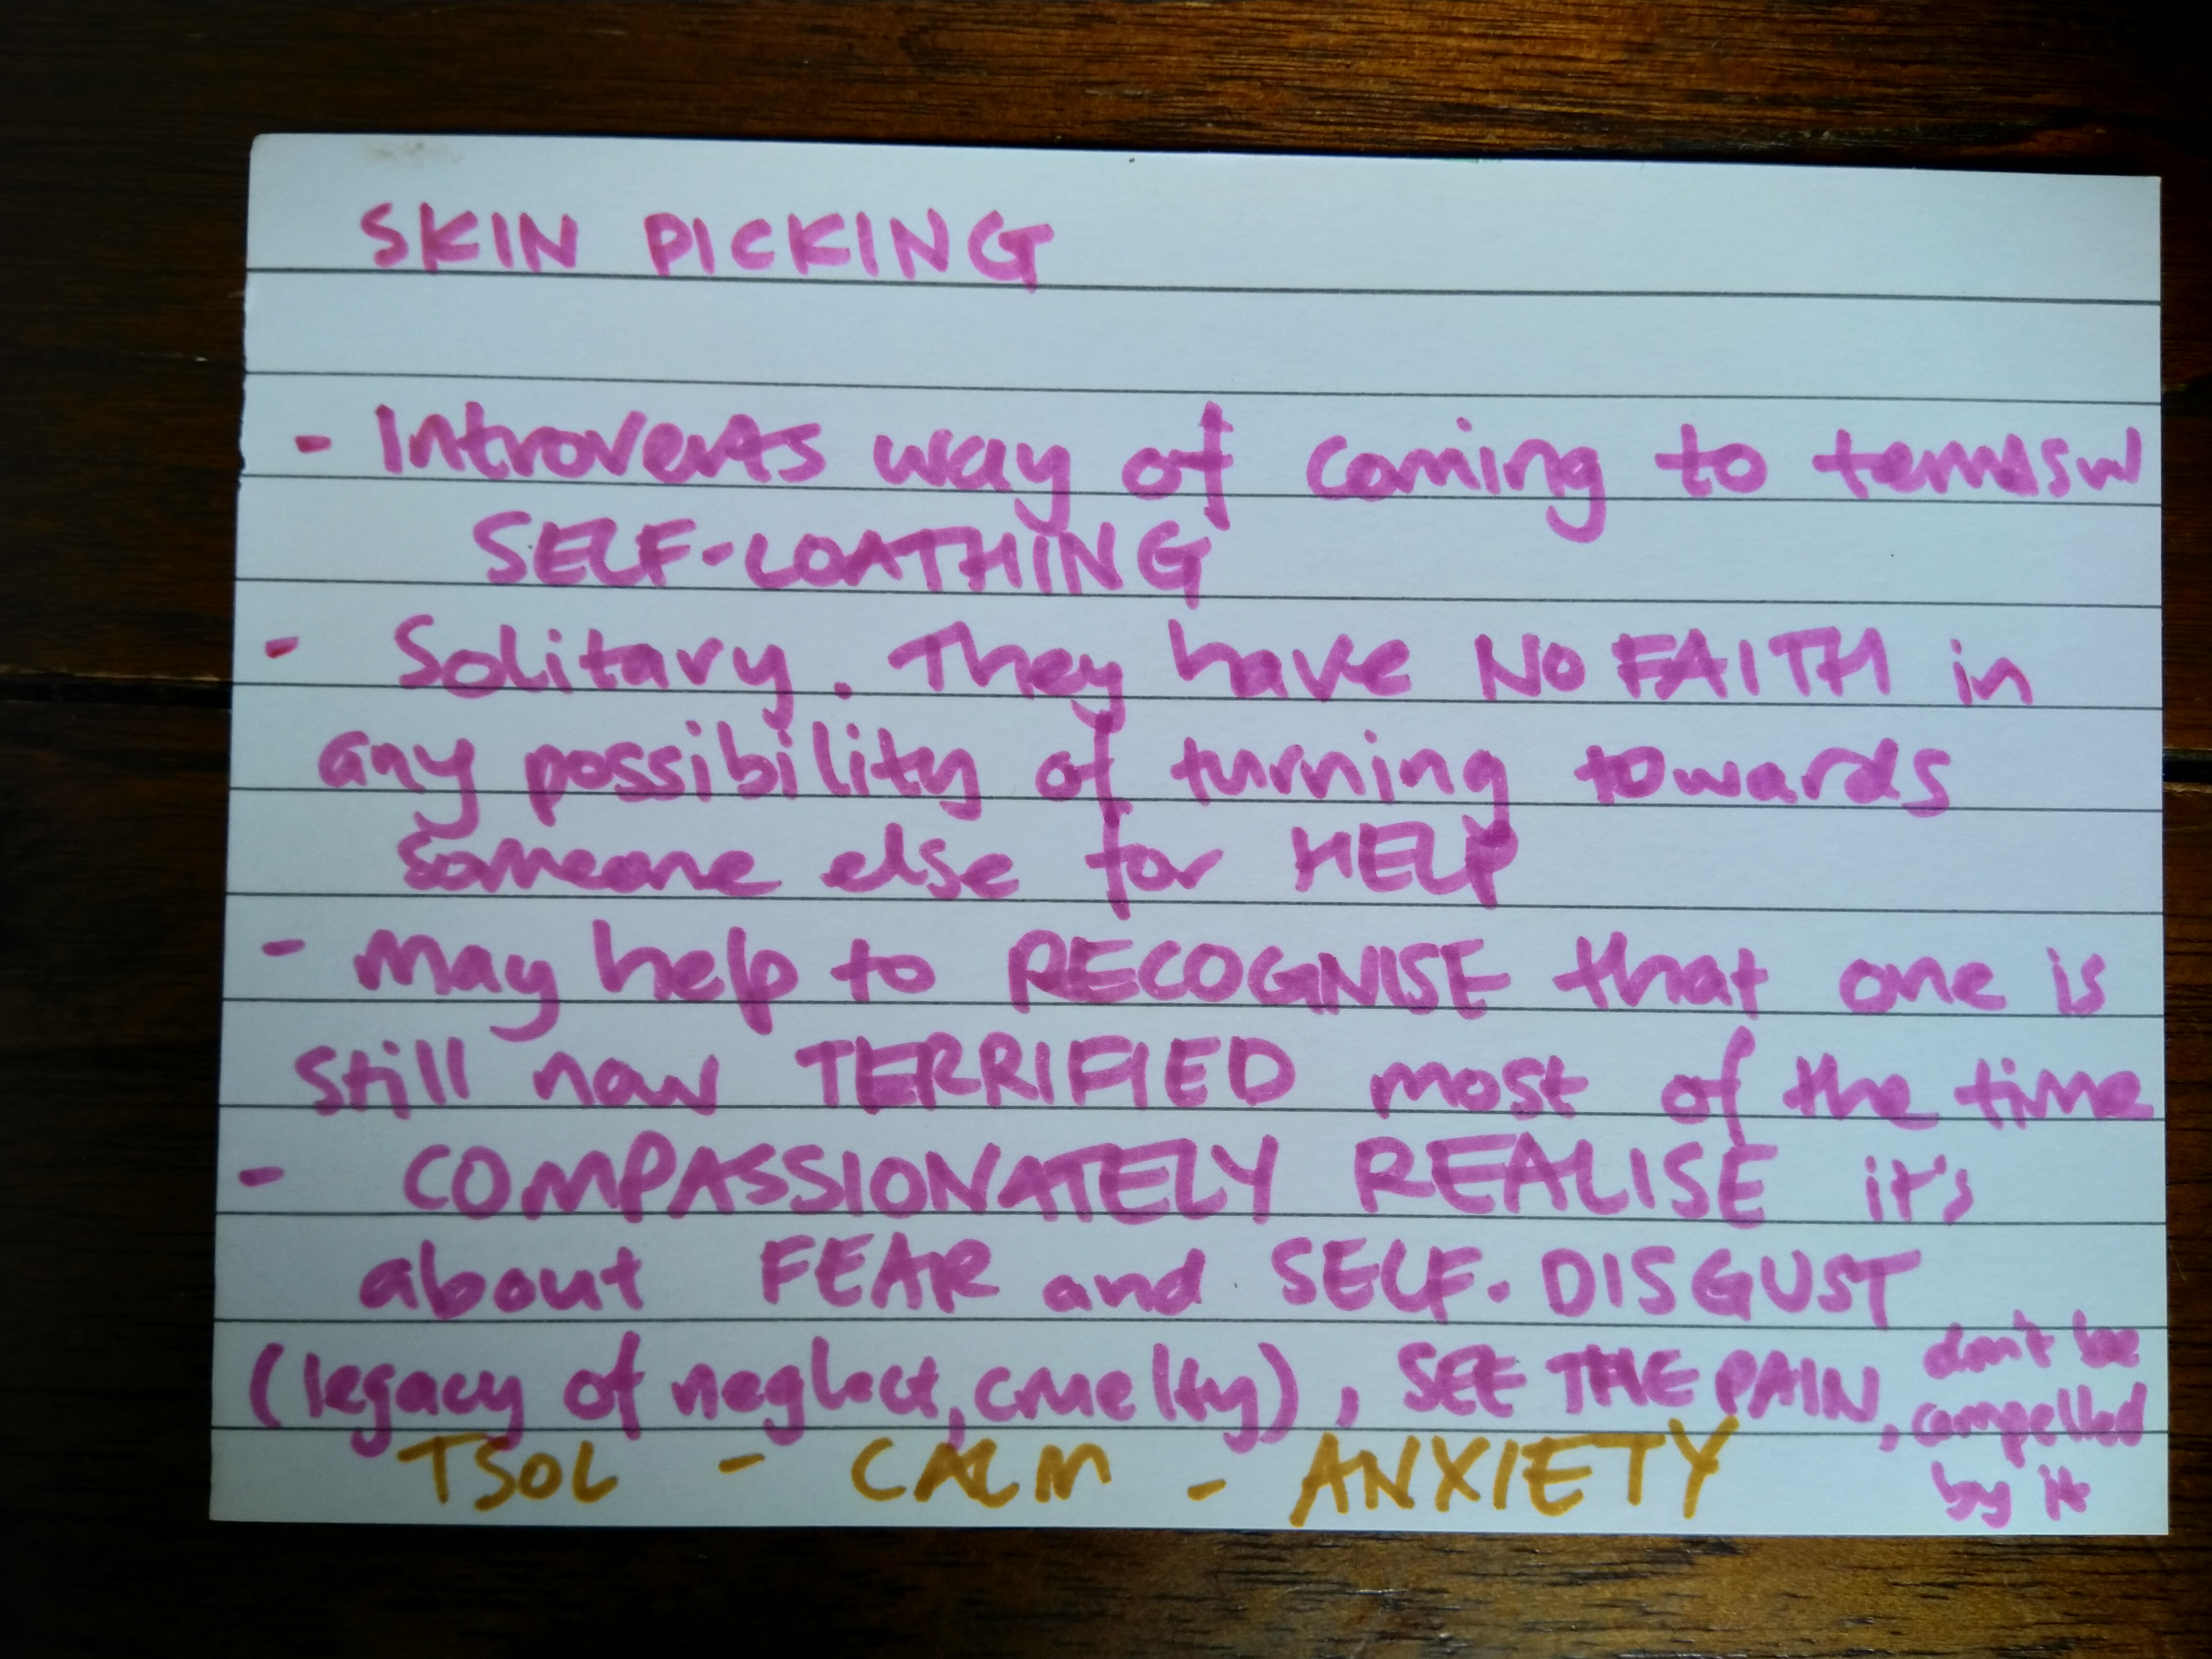 SKIN PICKING
- Introverts way of coming to terms w/
SELF-LOATHING
- Solitary. They have NO FAITH in
any possibility of turning towards
someone else for HELP
- May help to RECOGNISE that one is
still now TERRIFIED most of the time
- COMPASSIONATELY REALISE it's
about FEAR and SELF-DISGUST
(legacy of neglect, cruelty), SEE THE PAIN, don't be
compelled
by it
TSOL - CALM - ANXIETY